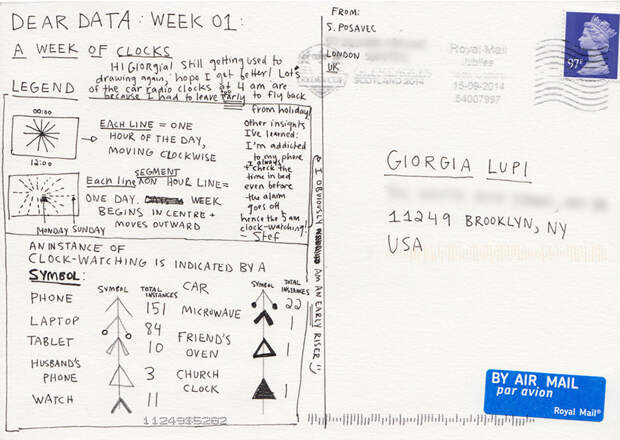 DEAR DATA: WEEK 01:
A WEEK OF CLOCKS
Hi Giorgia! Still getting used to
drawing again, hope I get better! Lots
of the car radio clocks at 4 am are
because I had to leave early to fly back
from holiday!
LEGEND
00:00
12:00
EACH LINE = ONE
HOUR OF THE DAY,
MOVING CLOCKWISE
Each line SEGMENT ON HOUR LINE=
ONE DAY. WEEK
BEGINS IN CENTRE +
MOVES OUTWARD
MONDAY SUNDAY
other insights
I've learned:
I'm addicted
to my phone
I always
+ check the
time in bed
even before
the alarm
goes off,
hence the 5 am
clock-watching!
- Stef
& I OBVIOUSLY AM AN EARLY RISER
AN INSTANCE OF
CLOCK-WATCHING IS INDICATED BY A
SYMBOL:
SYMBOL TOTAL INSTANCES
PHONE 151
LAPTOP 84
TABLET 10
HUSBAND'S PHONE 3
WATCH 11
SYMBOL TOTAL INSTANCES
CAR 22
MICROWAVE 1
FRIEND'S OVEN 1
CHURCH CLOCK 1
11249$5282
FROM:
S. POSAVEC
LONDON
UK
Royal Mail
SCOTLAND 2014
15-09-2014
54007997
97p
GIORGIA LUPI
11249 BROOKLYN, NY
USA
BY AIR MAIL
par avion
Royal Mail